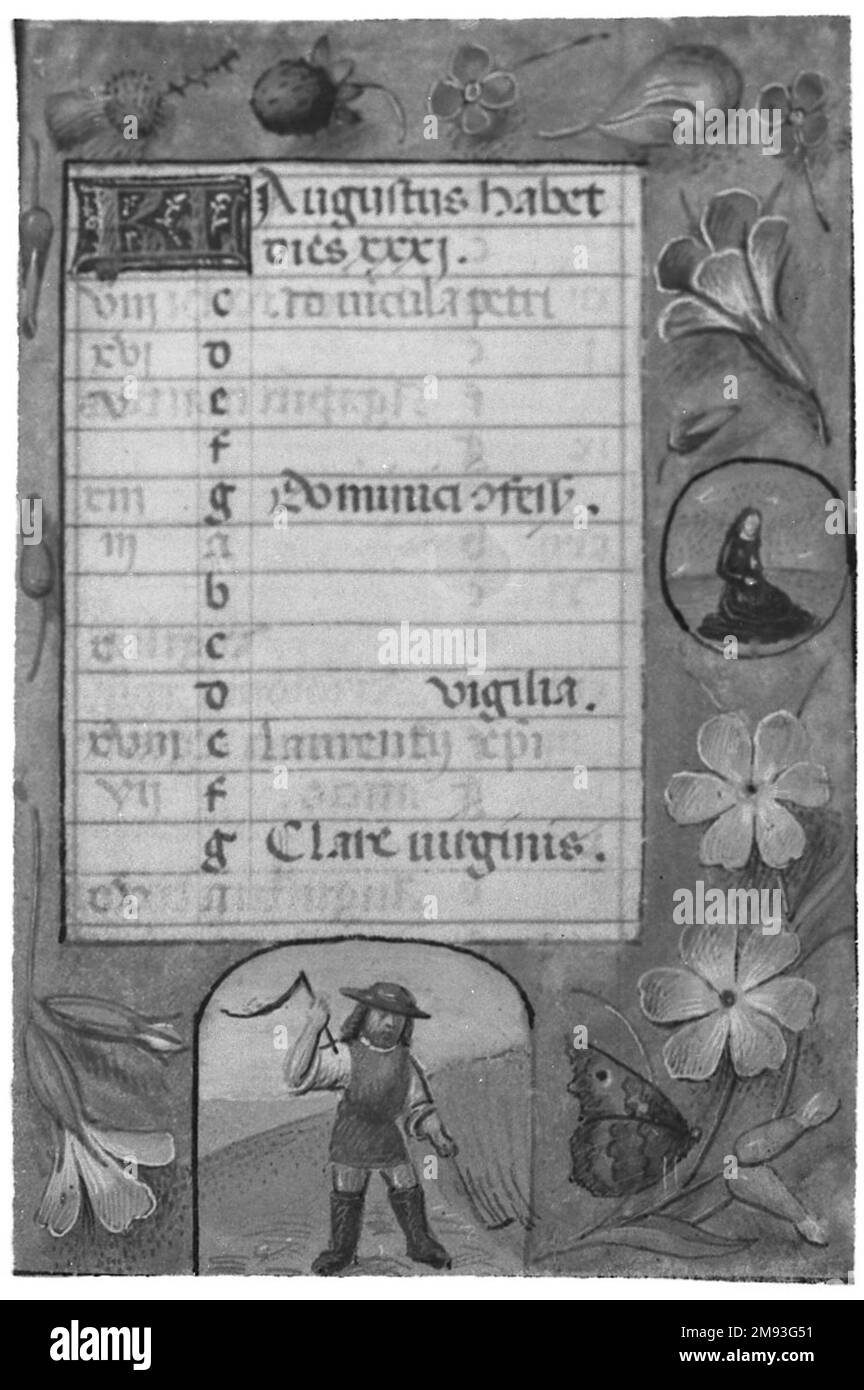 KL Augustus habet
dies xxxj.
viij c Ad vincula petri
xvj d
v e
f
xiij g Dominici ɔfess.
iij a
b
c
d vigilia.
xviij e Laurentij
vij f
g Clare virginis.
a
alamy
Image ID: 2M93G51
www.alamy.com